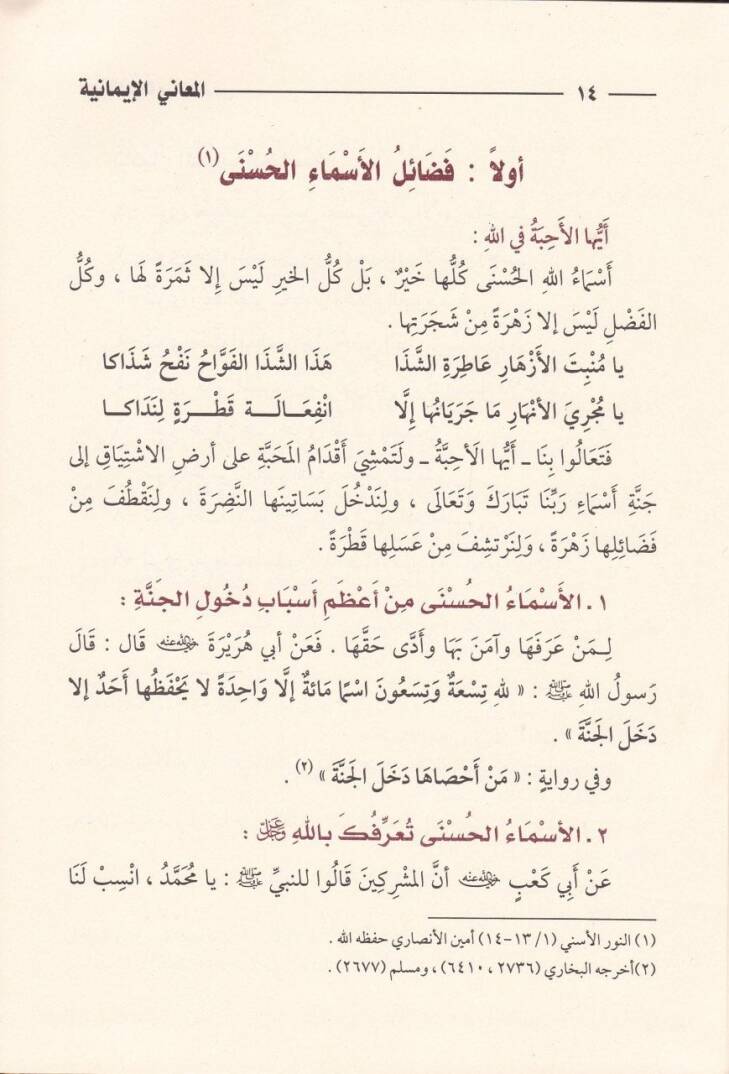 ١٤ المعاني الإيمانية
أولاً : فَضَائِلُ الأَسْمَاءِ الحُسْنَى (١)
أَيُّها الأَحِبَةُ في اللهِ :
أَسْمَاءُ اللهِ الحُسْنَى كُلُّها خَيْرٌ ، بَلْ كُلُّ الخيرِ لَيْسَ إِلا ثَمَرَةً لهَا ، وكُلُّ
الفَضْلِ لَيْسَ إلا زَهْرَةً مِنْ شَجَرَتِها .
يا مُنْبِتَ الأَزْهَارِ عَاطِرَةِ الشَّذَا هَذَا الشَّذَا الفَوَّاحُ نَفْحُ شَذَاكا
يا مُجْرِيَ الأنْهَارِ مَا جَرَيَانُها إِلَّا انْفِعَالَـةِ قَطْـرَةٍ لِنَدَاكـا
فَتَعَالُوا بِنَا ـ أَيُّها الأَحِبَّةُ ـ ولَتَمْشِيَ أَقْدَامُ المَحَبَّةِ على أرضِ الاشْتِيَاقِ إلى
جَنَّةِ أَسْمَاءِ رَبِّنَا تَبَارَكَ وَتَعَالَى ، ولِنَدْخُلَ بَسَاتِينَها النَّضِرَةَ ، ولِنَقْطُفَ مِنْ
فَضَائِلِها زَهْرَةً ، وَلِنَرْتشِفَ مِنْ عَسَلِها قَطْرَةً .
١. الأَسْمَاءُ الحُسْنَى مِنْ أَعْظَمِ أَسْبَابِ دُخُولِ الجَنَّةِ :
لِـمَنْ عَرَفَهَا وآمَنَ بَهَا وأَدَّى حَقَّهَا . فَعَنْ أبي هُرَيْرَةَ رضي الله عنه قَال : قَالَ
رَسولُ اللهِ ﷺ : « للهِ تِسْعَةٌ وَتِسَعُونَ اسْمًا مَائةٌ إِلَّا وَاحِدَةً لا يَحْفَظُها أَحَدٌ إلا
دَخَلَ الجَنَّةَ » .
وفي روايةٍ : « مَنْ أَحْصَاهَا دَخَلَ الجَنَّةَ » (٢) .
٢. الأسْمَاءُ الحُسْنَى تُعَرِّفُكَ بِاللهِ عز وجل :
عَنْ أَبي كَعْبٍ رضي الله عنه أنَّ المشرِكِينَ قَالُوا للنبيِّ ﷺ : يا مُحَمَّدُ ، انْسِبْ لَنَا
(١) النور الأسني (١/ ١٣-١٤) أمين الأنصاري حفظه الله .
(٢)أخرجه البخاري (٢٧٣٦ ، ٦٤١٠) ، ومسلم (٢٦٧٧) .